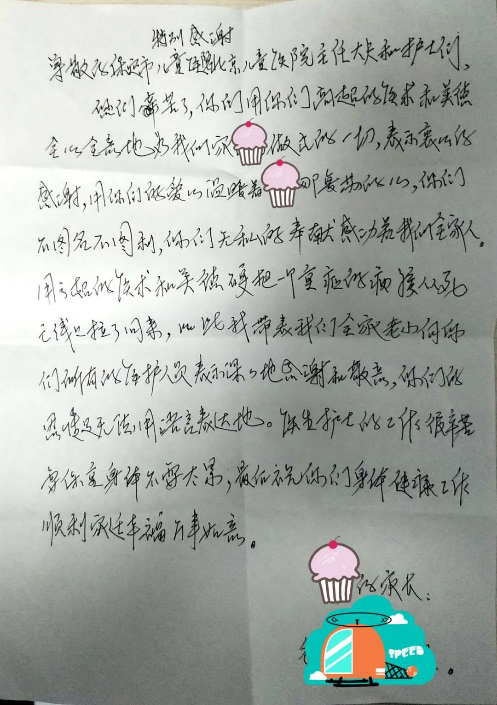 特别感谢
尊敬的保定市儿童医院北京儿童医院主任大夫和护士们,
你们辛苦了,你们用你们高超的技术和美德
全心全意地为我们家做出的一切,表示衷心的
感谢,用你们的爱心温暖着的心,你们
不图名不图利,你们无私的奉献感动着我们全家人。
用高超的技术和美德硬把一个重症的病孩从死
亡线上拉了回来,以此我带表我们全家老小向你
们所有的医护人员表示深深地感谢和敬意,你们的
恩情是无法用语言表达地。医生护士的工作很辛苦
要保重身体不要太累,最后祝你们身体健康工作
顺利家廷幸福万事如意。
的家长:
SPEED